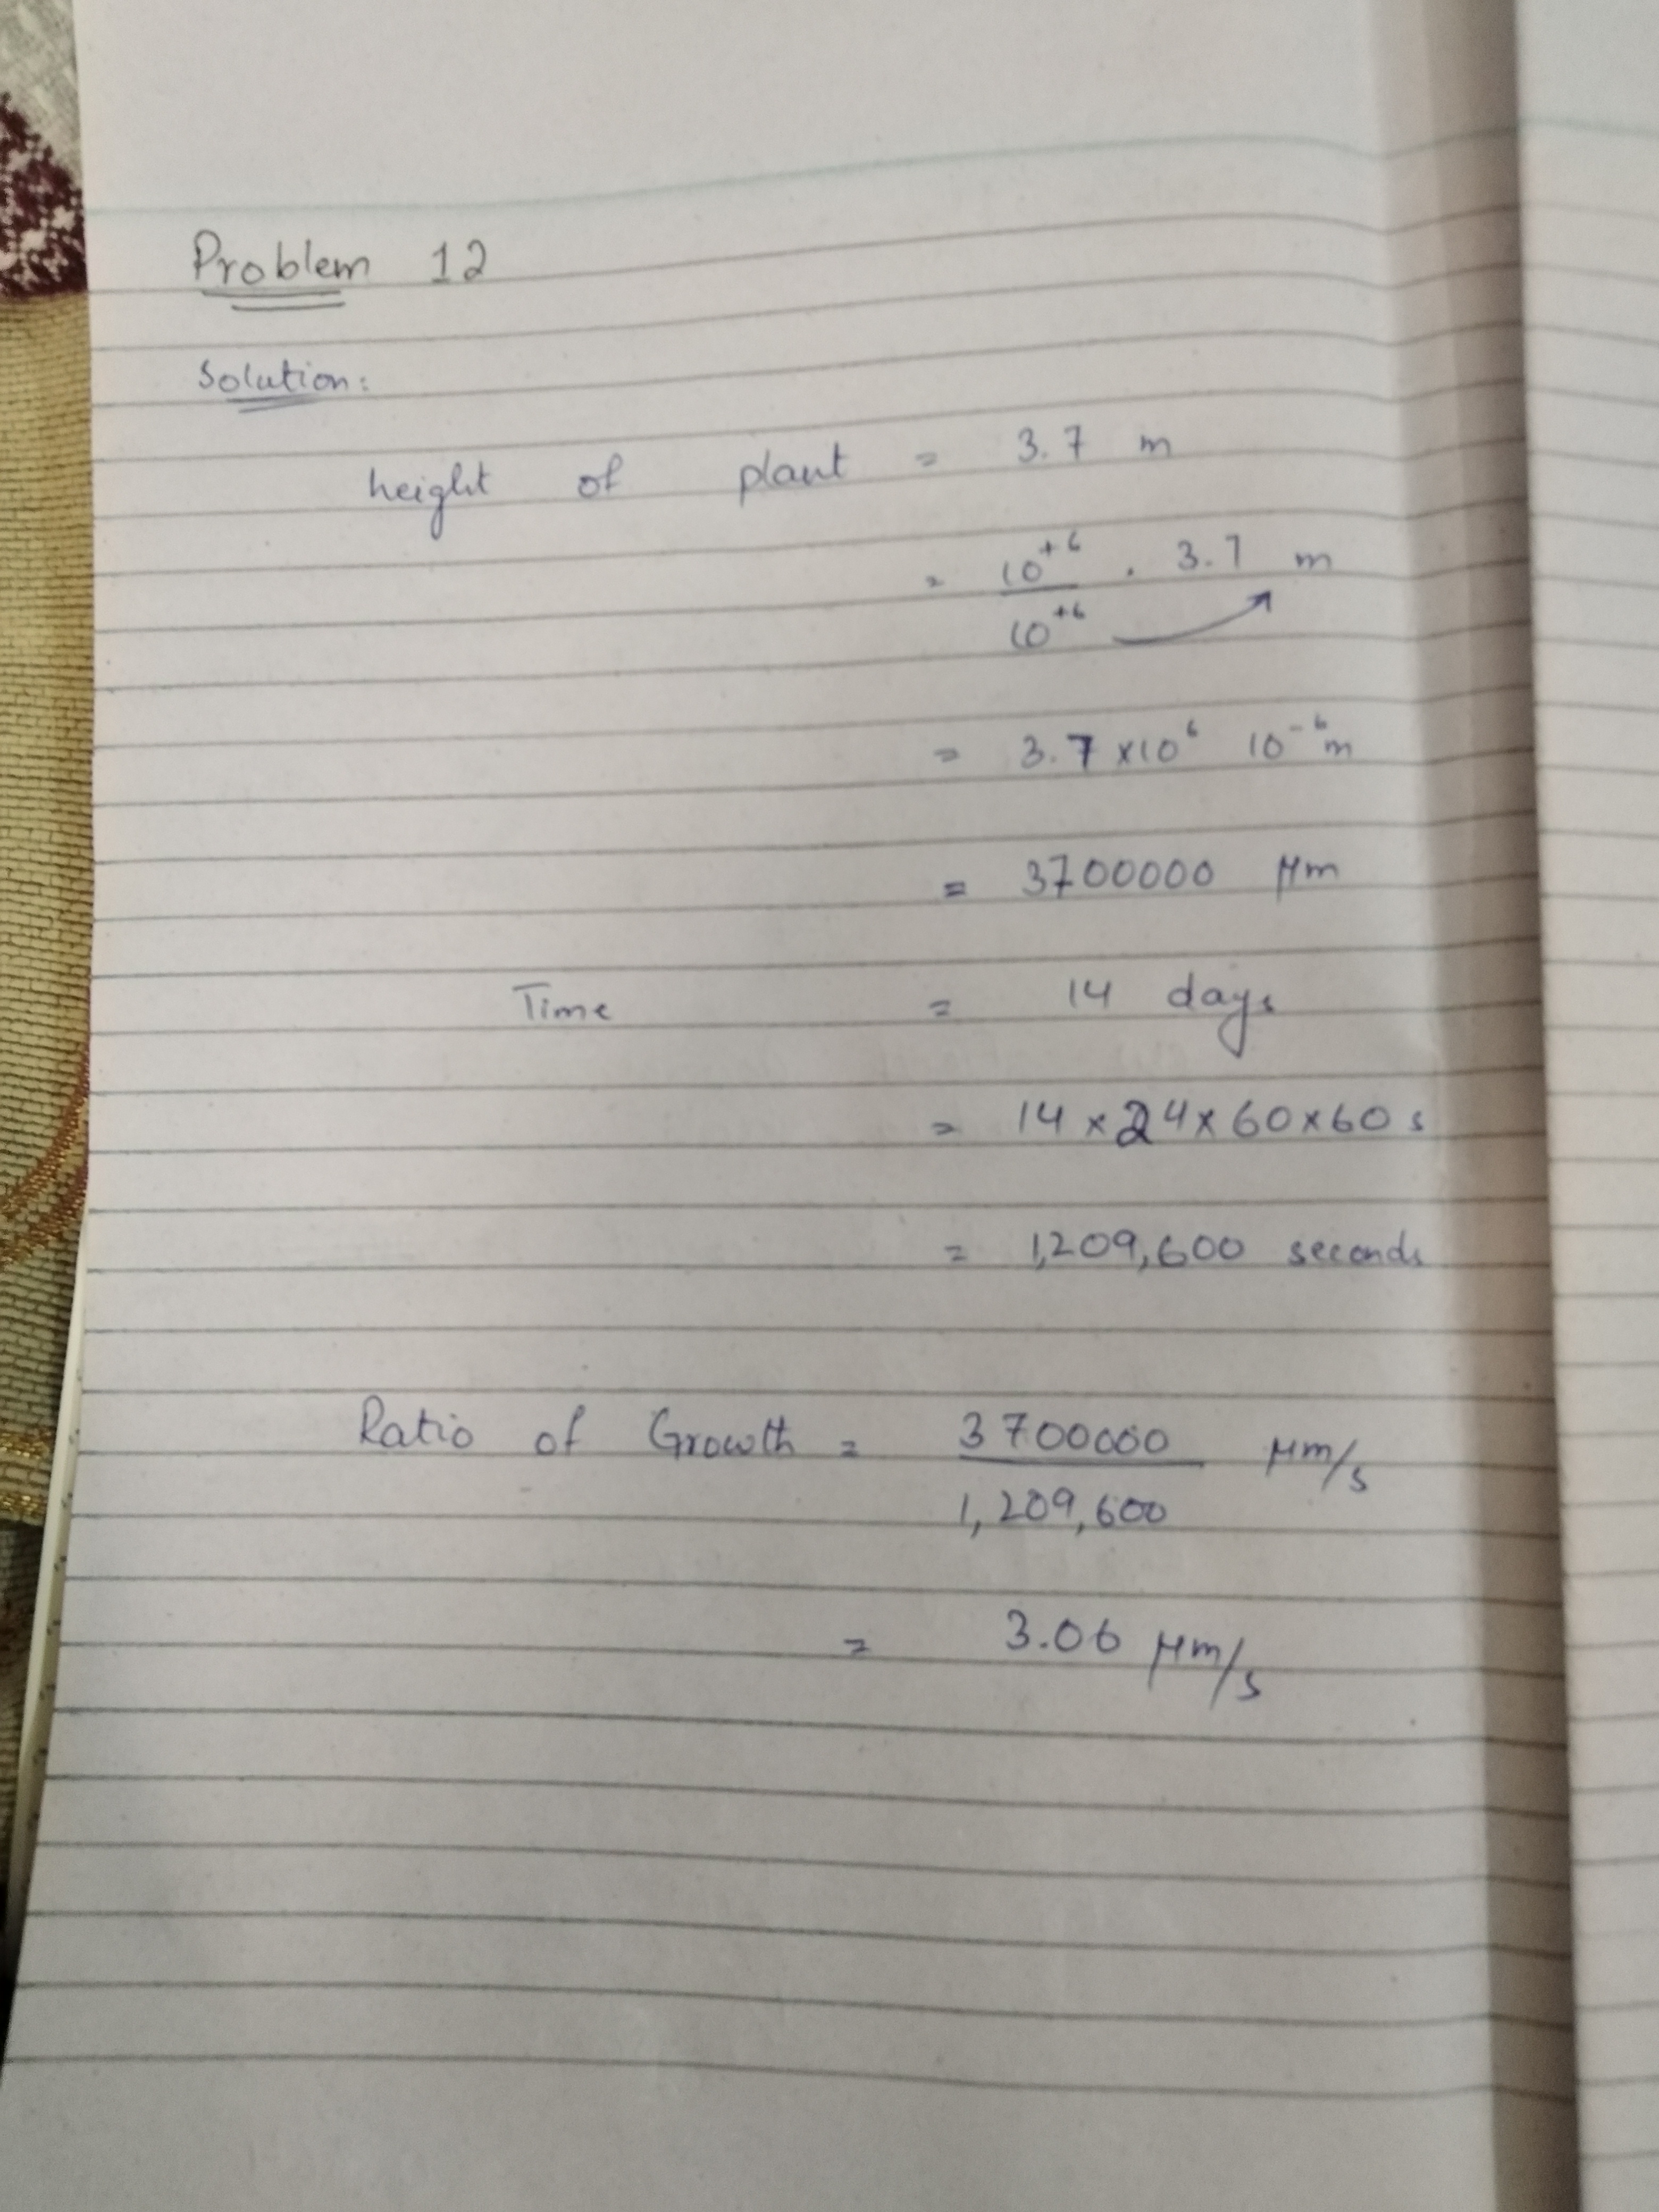 Problem 12
Solution:
height of plant = 3.7 m
= 10^+6 / 10^+6 . 3.7 m
= 3.7 ×10^6 10^-6 m
= 3700000 μm
Time = 14 days
= 14 × 24 × 60 × 60 s
= 1,209,600 seconds
Ratio of Growth = 3700000 / 1,209,600 μm/s
= 3.06 μm/s